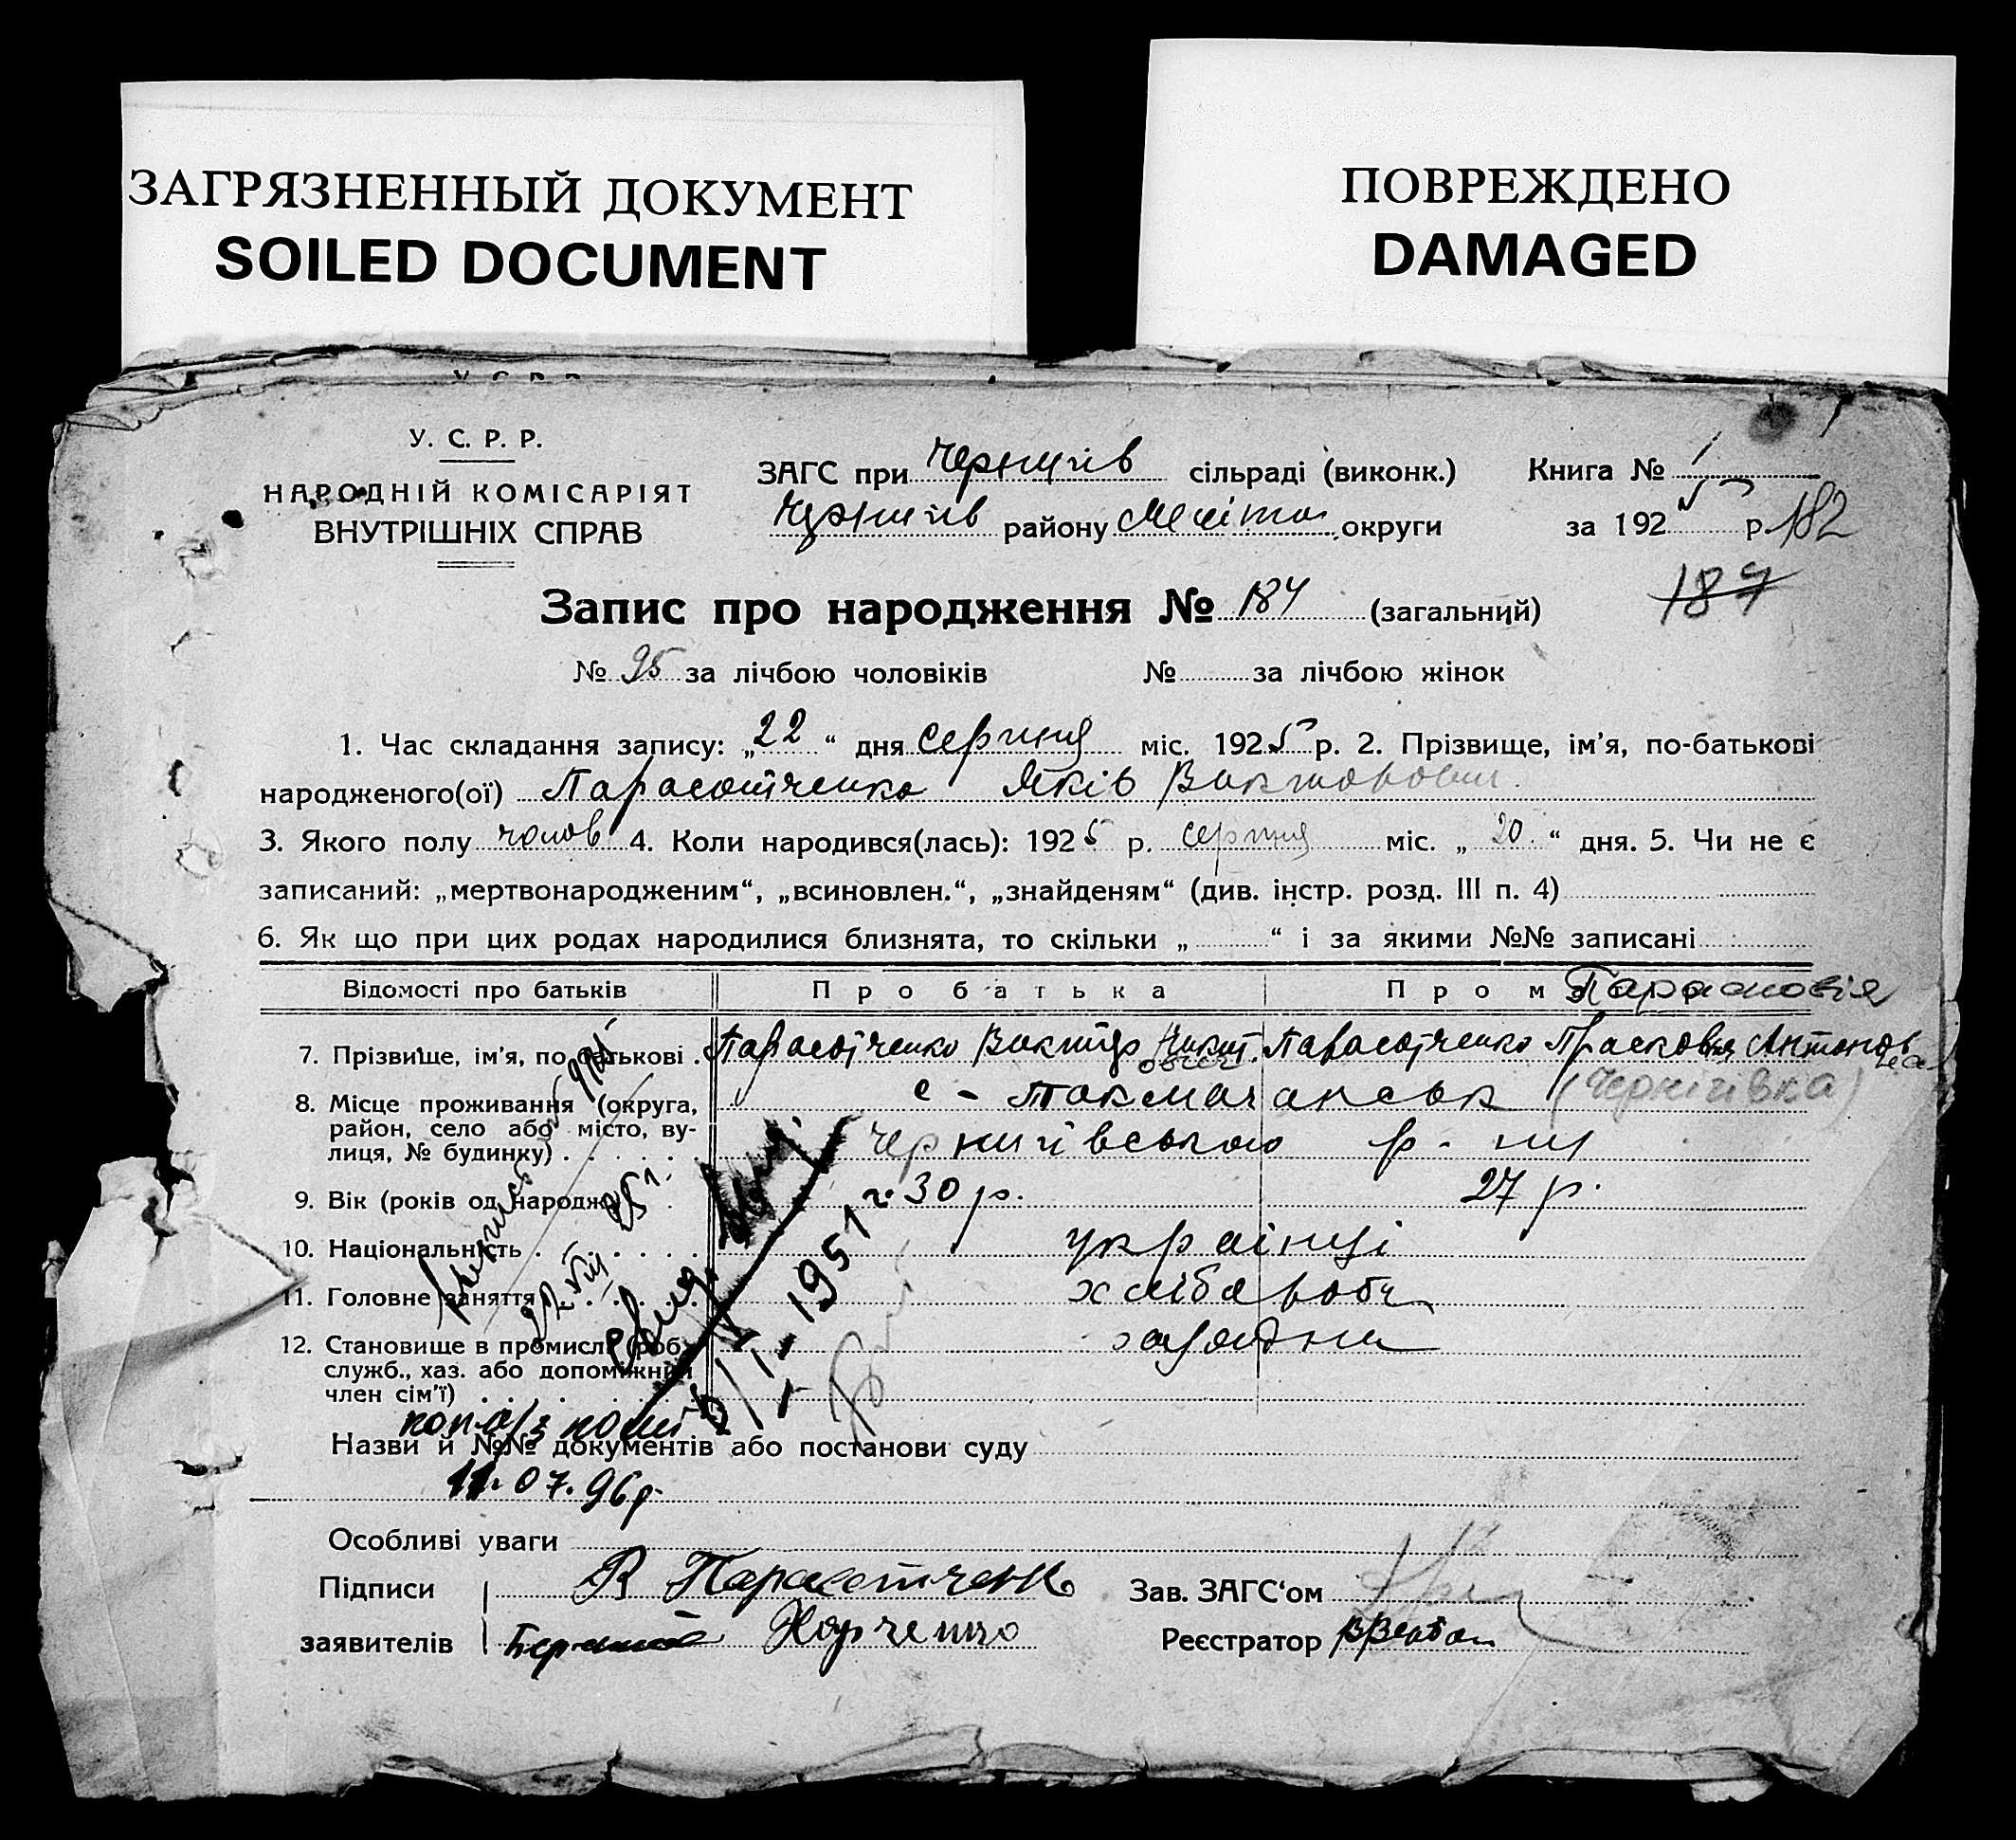 ЗАГРЯЗНЕННЫЙ ДОКУМЕНТ
SOILED DOCUMENT
ПОВРЕЖДЕНО
DAMAGED
У. С. Р. Р.
НАРОДНІЙ КОМІСАРІЯТ
ВНУТРІШНІХ СПРАВ
ЗАГС при Чернигів сільраді (виконк.) Книга № 1
Чернигів району Меліто округи за 1925 р. 182
187
Запис про народження № 184 (загальний)
№ 95 за лічбою чоловіків № за лічбою жінок
1. Час складання запису: „22“ дня серпня міс. 1925 р. 2. Прізвище, ім'я, по-батькові
народженого(ої) Парасотченко Яків Викторович.
3. Якого полу чолов 4. Коли народився(лась): 1925 р. серпня міс. „20.“ дня. 5. Чи не є
записаний: „мертвонародженим“, „всиновлен.“, „знайденям“ (див. інстр. розд. III п. 4)
6. Як що при цих родах народилися близнята, то скільки „ “ і за якими №№ записані
Відомості про батьків Про батька Про матір Парасковія
7. Прізвище, ім'я, по батькові. Парасотченко Виктор Никит.ович Парасотченко Прасковия Антоновна
8. Місце проживання (округа, с - Токмачанськ (Чернігівка)
район, село або місто, ву-
лиця, № будинку) Чернигівського р-ну
9. Вік (років од народж.) 30 р. 27 р.
10. Національність українці
11. Головне заняття хлібороби
12. Становище в промислі (роб.,
служб., хаз. або допоміжний
член сім'ї)
5/I-1951 г.
Назви й №№ документів або постанови суду
11.07.96р.
Особливі уваги
Підписи В Парасотченко Зав. ЗАГС‘ом
заявителів Харченко Реєстратор